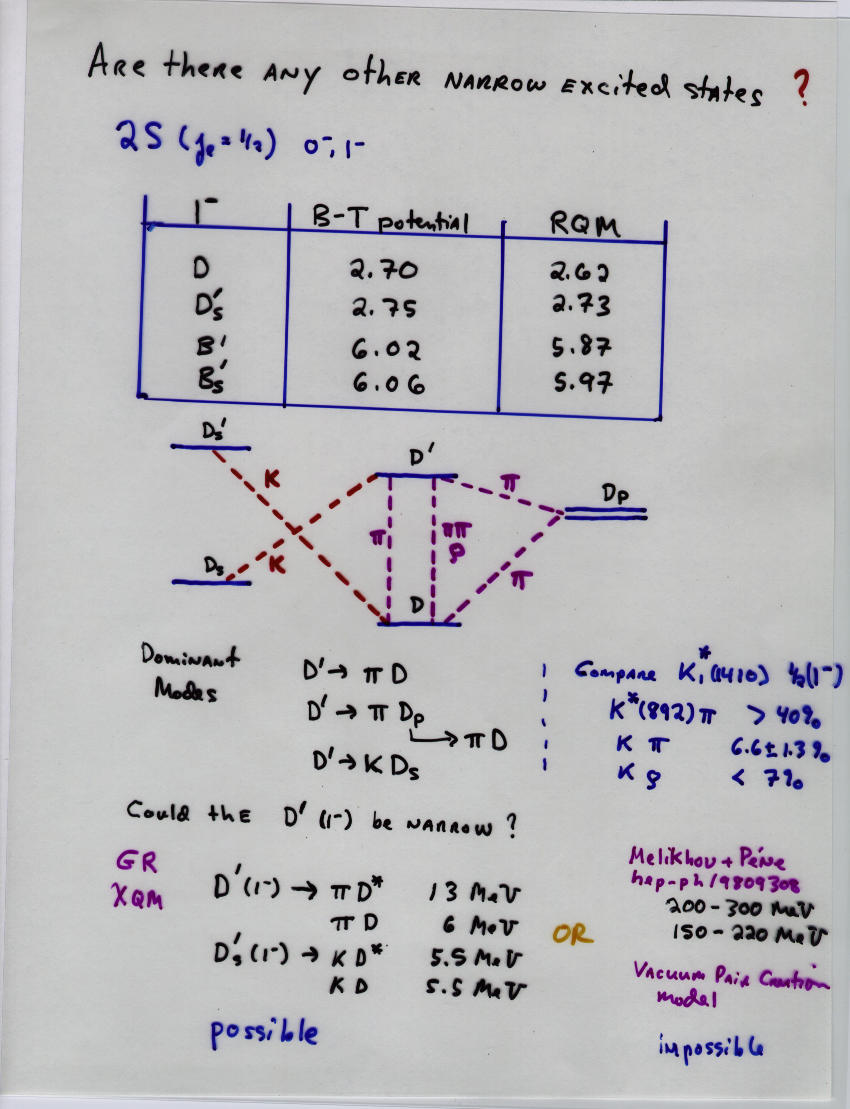 Are there ANY other NARROW Excited states ?
2S (jₑ = 1/2) 0⁻, 1⁻
1⁻ B-T potential RQM
D 2.70 2.62
Dₛ′ 2.75 2.73
B′ 6.02 5.87
Bₛ′ 6.06 5.97
Dₛ′
D′
K
π
Dₚ
π
ππ
ρ
Dₛ
K
π
D
Dominant
Modes
D′ → π D
D′ → π Dₚ
→ π D
D′ → K Dₛ
Compare K₁*(1410) ½(1⁻)
K*(892)π > 40%
K π 6.6 ± 1.3 %
K ρ < 7%
Could the D′ (1⁻) be NARROW ?
GR
χQM
D′(1⁻) → π D* 13 MeV
π D 6 MeV
Dₛ′(1⁻) → K D* 5.5 MeV
K D 5.5 MeV
possible
OR
Melikhov + Pène
hep-ph/9809308
200-300 MeV
150-220 MeV
Vacuum Pair Creation
model
impossible